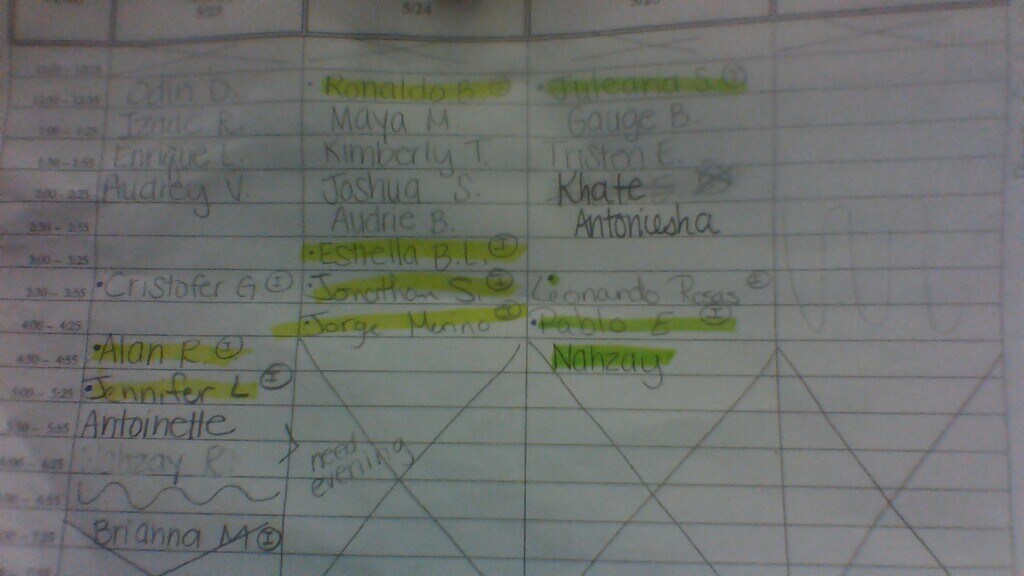 5/23 5/24
12:30 - 12:55 Odin D. · Ronaldo B. I · Juleana S. I
1:00 - 1:25 Izaac R. Maya M. Gauge B.
1:30 - 1:55 Enrique L. Kimberly T. Tristen E.
2:00 - 2:25 Audrey V. Joshua S. Khate
2:30 - 2:55 Audrie B. Antoniesha
3:00 - 3:25 · Estrella B.L. I
3:30 - 3:55 · Cristofer G I · Jonathan S. I Leonardo Rosas I
4:00 - 4:25 · Jorge Merino I · Pablo E I
4:30 - 4:55 · Alan R. I Nahzay
5:00 - 5:25 · Jennifer L I
5:30 - 5:55 Antoinette
6:00 - 6:25 Nahzay R. need
evening
Brianna M I